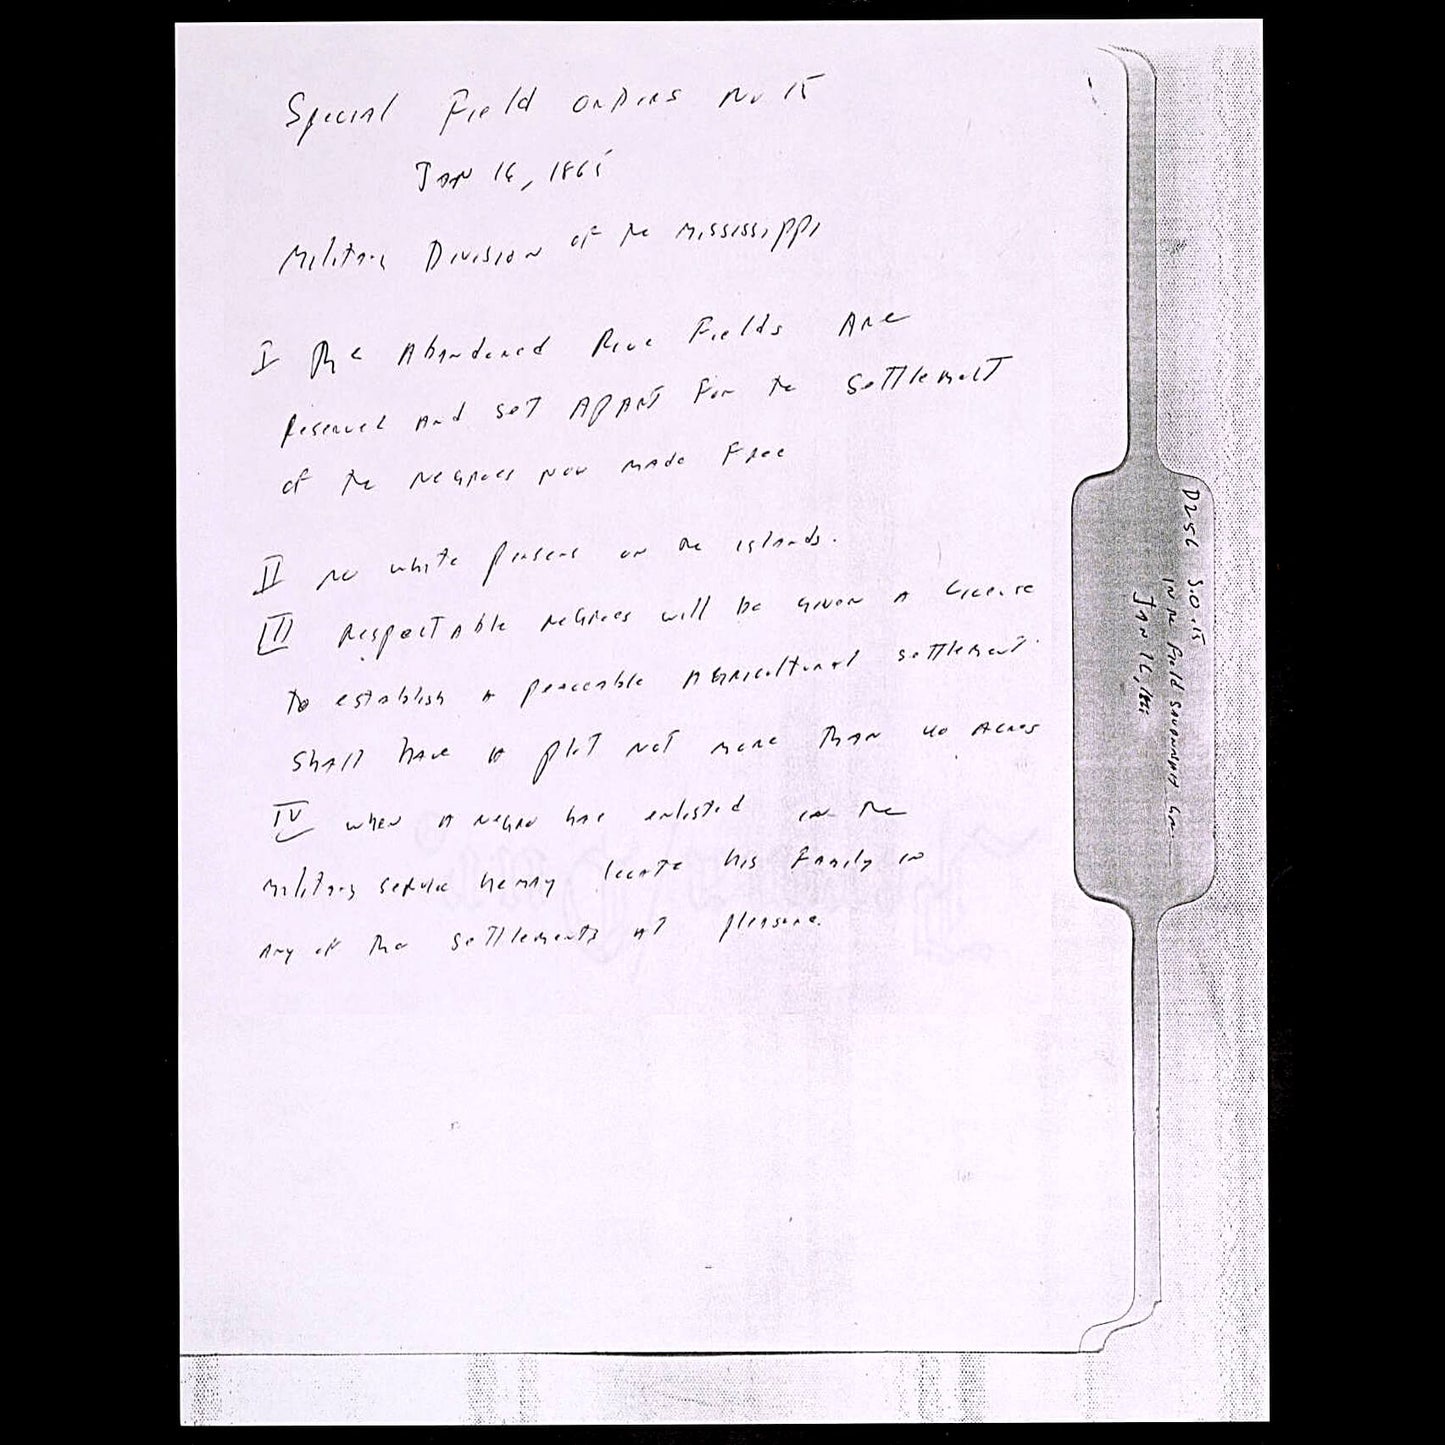 Special Field Orders No 15
Jan 16, 1865
Military Division of the Mississippi
I The Abandoned Rice Fields Are
reserved and set apart for the settlement
of the negroes now made free
II no white persons on the islands.
III Respectable negroes will be given a license
to establish a peaceable agricultural settlement.
Shall have a plot not more than 40 acres
IV when a negro has enlisted in the
military service he may locate his family in
any of the settlements at pleasure.
D256 S.O. 15
In the Field Savannah Ga
Jan 16, 1865